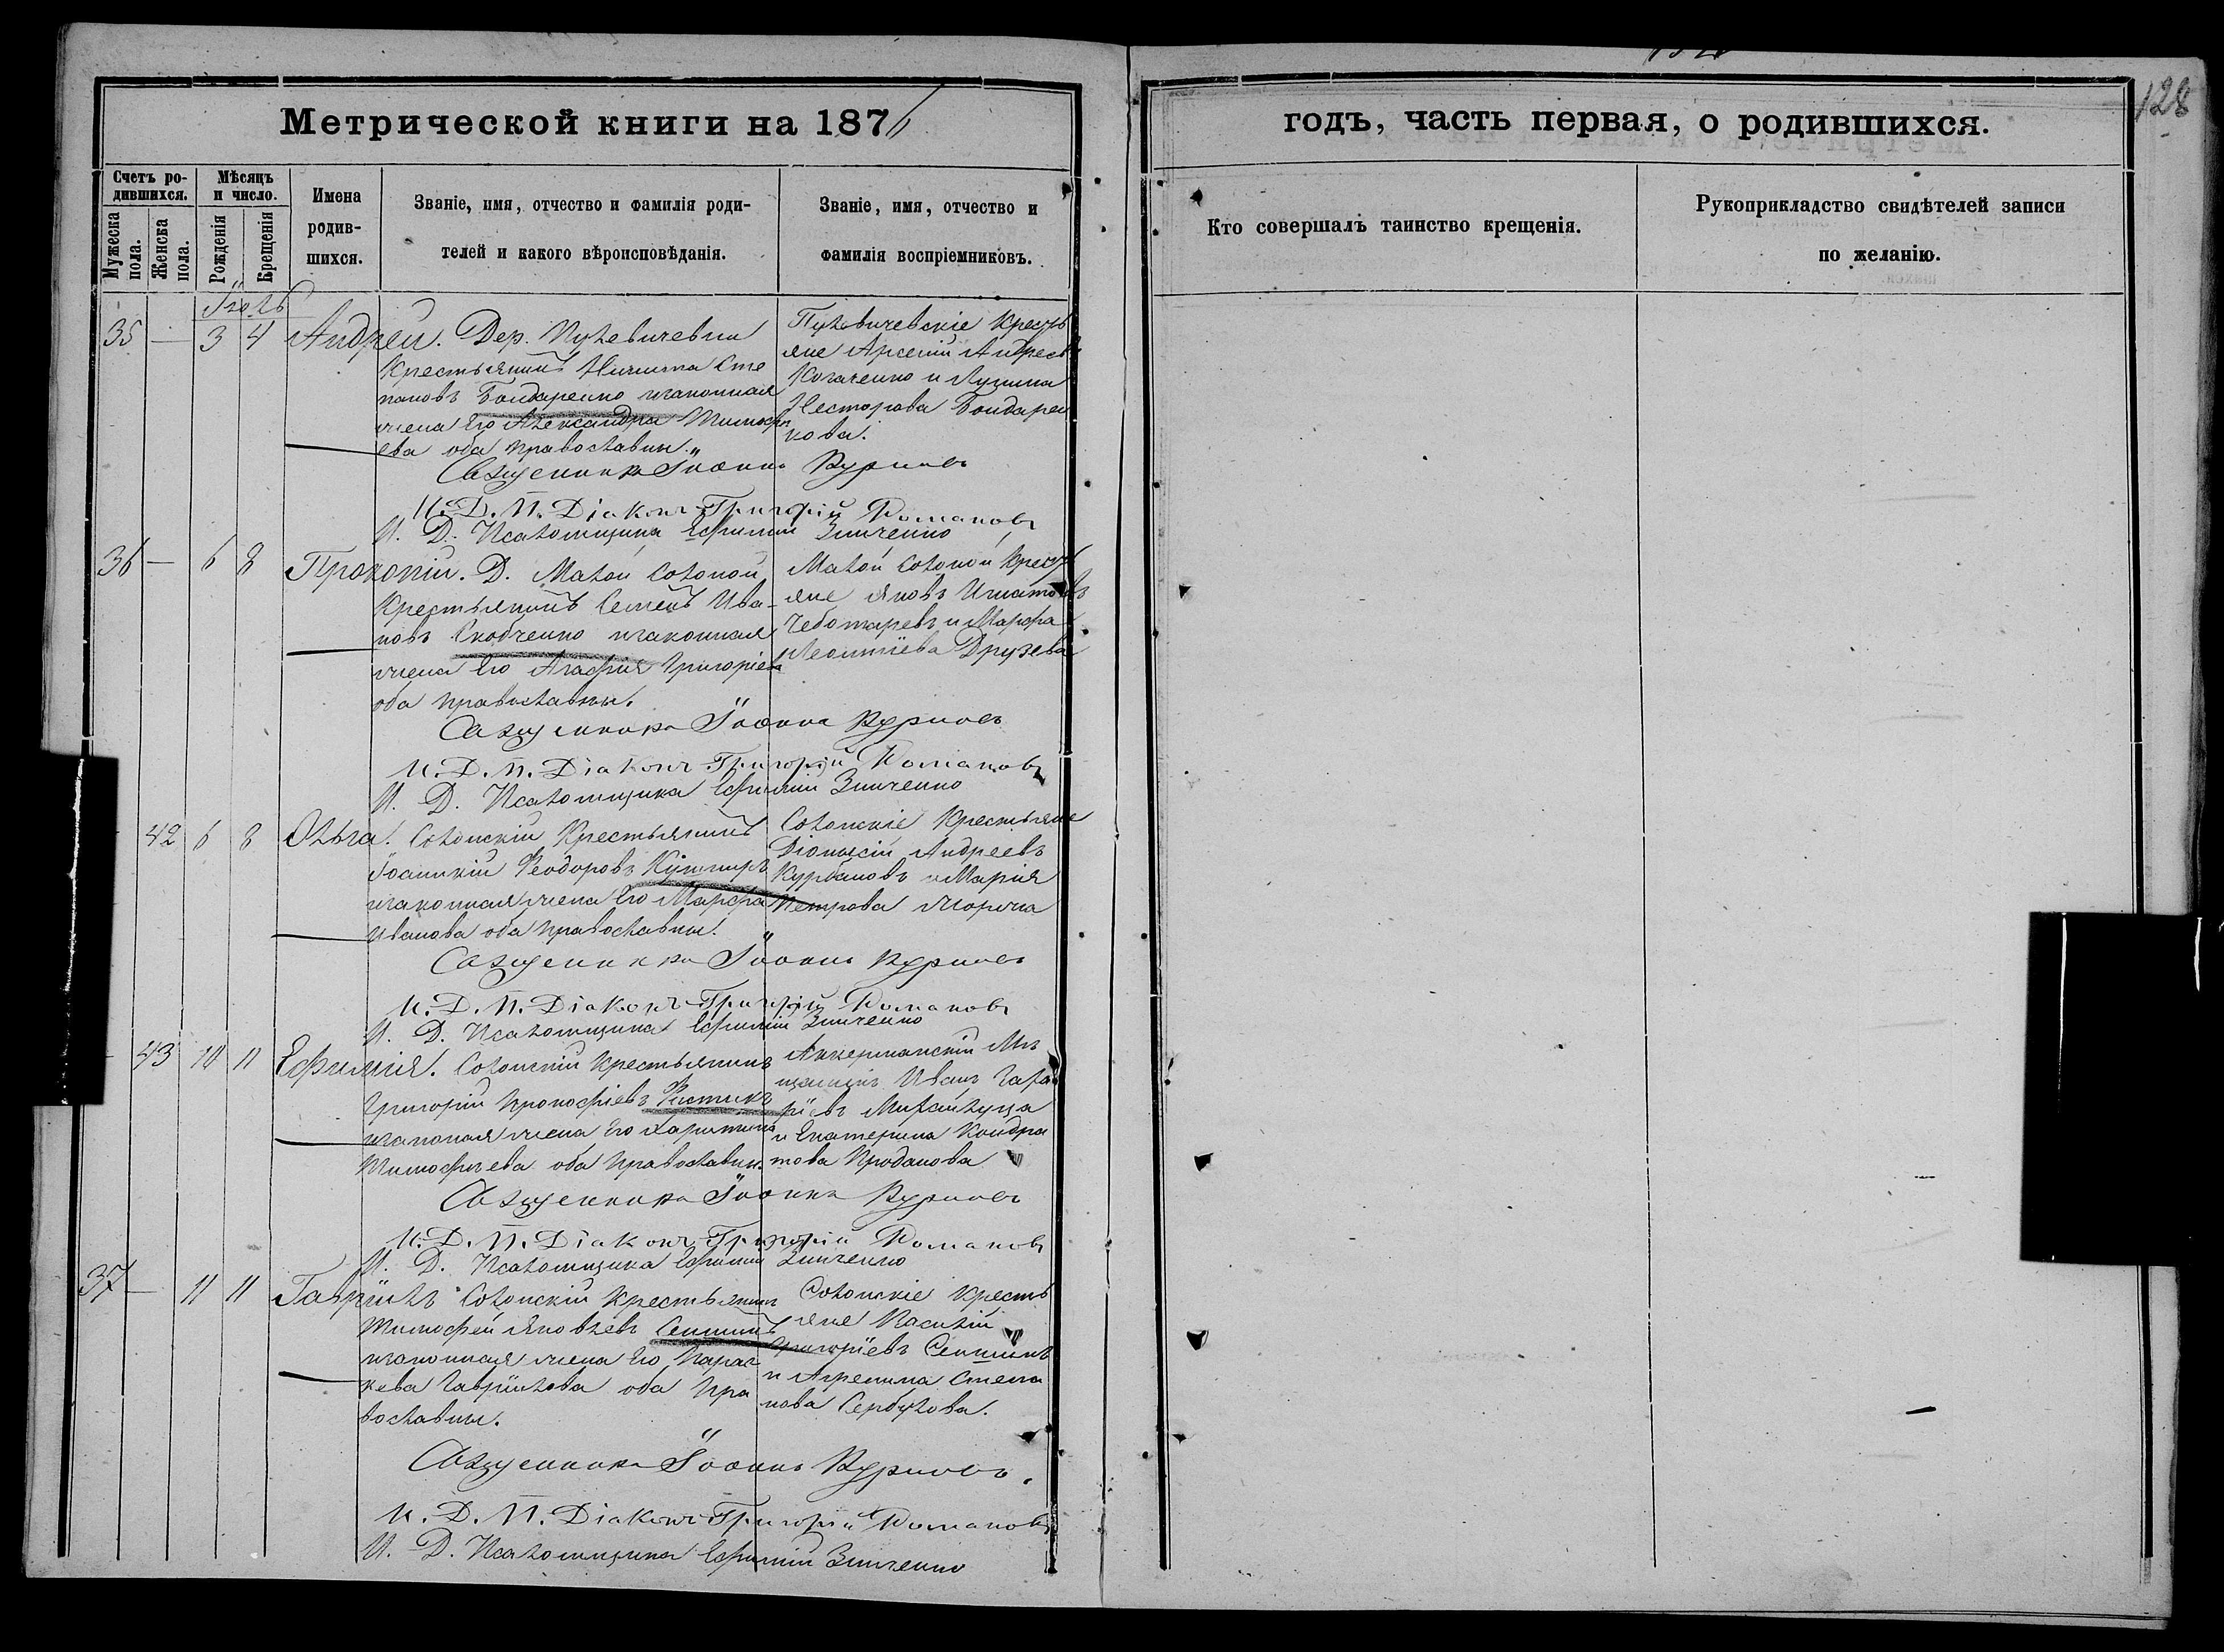 Метрической книги на 1876
годъ, часть первая, о родившихся.
128
Счетъ ро-
дившихся.
Мѣсяцъ
и число.
Мужеска
пола.
Женска
пола.
Рожденія
Крещенія
Имена
родив-
шихся.
Званіе, имя, отчество и фамилія роди-
телей и какого вѣроисповѣданія.
Званіе, имя, отчество и
фамилія воспріемниковъ.
Кто совершалъ таинство крещенія.
Рукоприкладство свидѣтелей записи
по желанію.
Іюль
35 — 3 4 Андрей. Дер.
Крестьянинъ Никита Сте
пановъ Бондаренко и законная
жена его Александра Тимофе
ева оба православны.
Кресть
яне Арсеній Андреевъ
и
Несторова Бондарен
кова.
Священникъ Іоаннъ Куриловъ
И. Д. П. Діаконъ Григорій Романовъ
И. Д. Псаломщика Ефимій Зинченко
36 — 6 8 Прокопій. Д. Малой Солоной
Крестьянинъ Семенъ Ива-
новъ Скобченко и законная
жена его Агафія Григоріева
оба православны.
Малой Солоной Кресть
яне Яковъ Игнатовъ
Чеботаревъ и Марфа
Леонтіева Друзева
Священникъ Іоаннъ Куриловъ
И. Д. П. Діаконъ Григорій Романовъ
И. Д. Псаломщика Ефимій Зинченко
42 6 8 Ольга. Солонскій Крестьянинъ
Іоанникій Ѳеодоровъ Кушниръ
и законная жена его Марфа
Иванова оба православны.
Солонскіе Крестьяне
Діонисій Андреевъ
Курбановъ и Марія
Петрова
Священникъ Іоаннъ Куриловъ
И. Д. П. Діаконъ Григорій Романовъ
И. Д. Псаломщика Ефимій Зинченко
43 10 11 Ефимія. Солонскій Крестьянинъ
Григорій Прокофіевъ
и законная жена его Харитина
Тимофеева оба православны.
Аккерманскій Мѣ
щанинъ Иванъ
Михайлуца
и Екатерина Кондра
това Проданова
Священникъ Іоаннъ Куриловъ
И. Д. П. Діаконъ Григорій Романовъ
И. Д. Псаломщика Ефимій Зинченко
37 — 11 11 Гавріилъ Солонскій Крестьянинъ
Тимофей Яковлевъ Сеншинъ
и законная жена его Парас
кева Гавріилова оба пра
вославны.
Солонскіе Кресть
яне Василій
Григоріевъ Сеншинъ
и Агрепина Степа
нова Сербулова.
Священникъ Іоаннъ Куриловъ.
И. Д. П. Діаконъ Григорій Романовъ
И. Д. Псаломщика Ефимій Зинченко